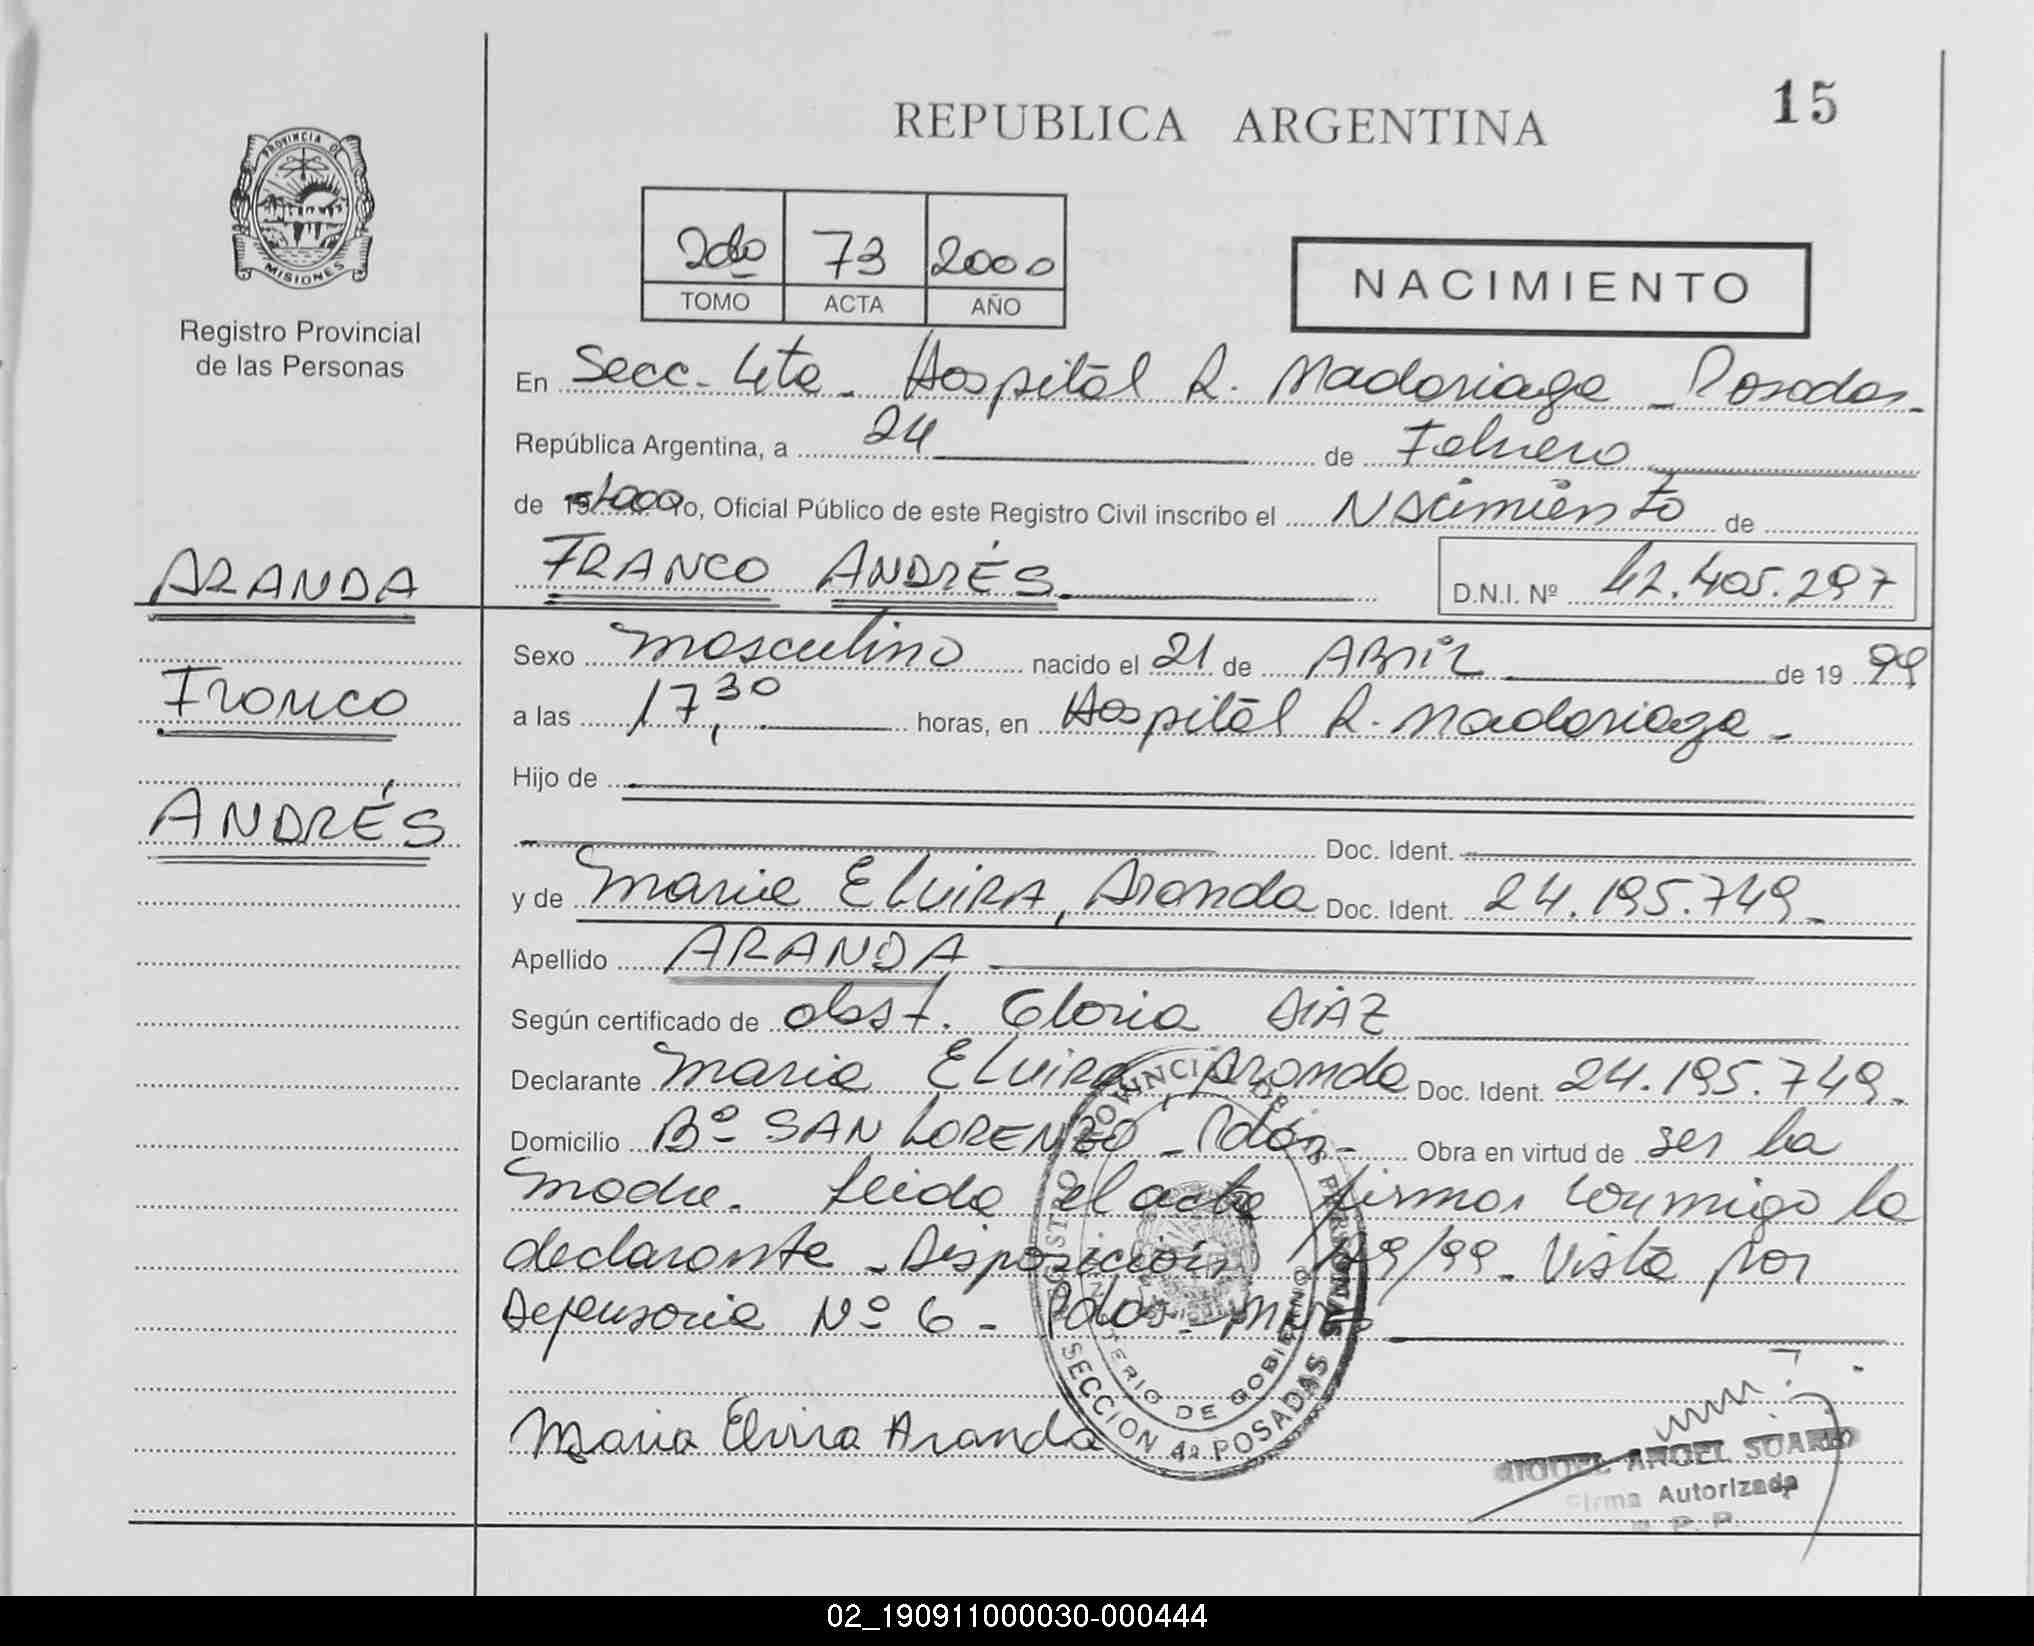 15
REPUBLICA ARGENTINA
PROVINCIA DE
MISIONES
Registro Provincial
de las Personas
2do 73 2000
TOMO ACTA AÑO
NACIMIENTO
En Secc. 4ta - Hospital R. Madariaga - Posadas -
República Argentina, a 24 de Febrero
de 2000 Yo, Oficial Público de este Registro Civil inscribo el Nacimiento de
ARANDA
FRANCO ANDRÉS D.N.I. Nº 42.405.297
Sexo masculino nacido el 21 de Abril de 19 99
Franco
a las 17,30 horas, en Hospital R. Madariaga -
Hijo de
ANDRÉS
Doc. Ident.
y de Maria ELVIRA, Aranda Doc. Ident. 24.195.749 -
Apellido ARANDA
Según certificado de obst. Gloria DIAZ
Declarante Maria Elvira, Aranda Doc. Ident. 24.195.749 -
Domicilio Bº SAN LORENZO - Pdas - Obra en virtud de ser la
madre. Leida el acta firma conmigo la
declarante - Disposición /99 - Vista por
Defensoria Nº 6 - Pdas - Mnes
Maria Elvira Aranda
REGISTRO PROVINCIAL DE LAS PERSONAS
MINISTERIO DE GOBIERNO
SECCION 4a POSADAS
MIGUEL ANGEL SUAREZ
Firma Autorizada
R. P. P.
02_190911000030-000444